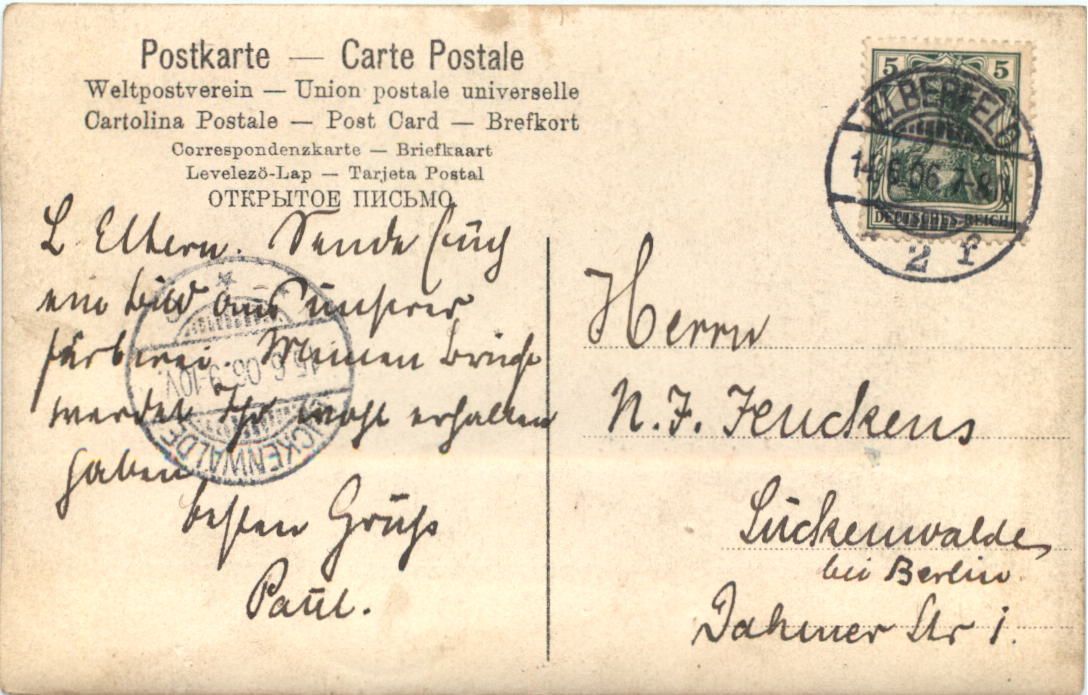 Postkarte — Carte Postale
Weltpostverein — Union postale universelle
Cartolina Postale — Post Card — Brefkort
Correspondenzkarte — Briefkaart
Levelező-Lap — Tarjeta Postal
ОТКРЫТОЕ ПИСЬМО
L Eltern. Sende Euch
ein Bild aus unserer
Färberei. Meinen Brief
werdet Ihr wohl erhalten
haben
besten Gruß
Paul.
5 5
DEUTSCHES REICH
ELBERFELD
14.6.06 7-8
2 f
LUCKENWALDE
15.6.06. 9-10V.
Herrn
N. F. Jenckens
Luckenwalde
bei Berlin.
Dahmer Str 1.